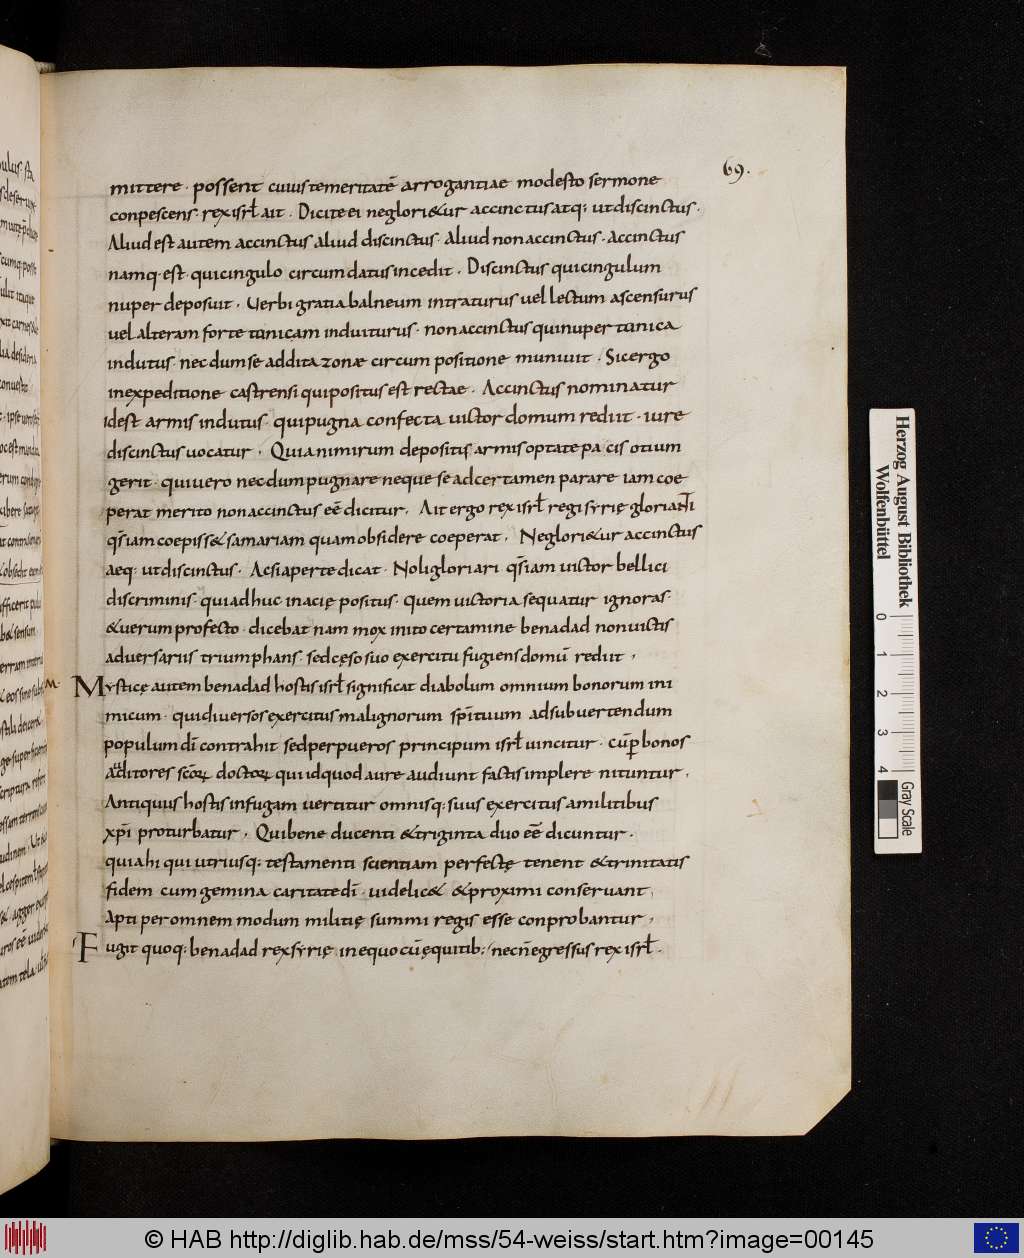 69.
mittere · possent cuius temeritatē arrogantiae modesto sermone
conpescens · rex isrł ait . Dicite ei neglori&ur accinctus atq; ut discinctus .
Aliud est autem accinctus aliud discinctus · Aliud non accinctus · Accinctus
namq · est · qui cingulo circumdatus incedit . Discinctus qui cingulum
nuper deposuit . Uerbi gratia balneum intraturus uel lectum ascensurus
uel alteram forte tunicam induiturus · non accinctus qui nuper tunica
indutus · necdum se addita zonae circumpositione muniuit . Sic ergo
in expeditione castrensi qui positus est rectae . Accinctus nominatur
Idest armis indutus · qui pugna confecta uictor domum rediit · iure
discinctus uocatur . Quia nimirum depositis armis optatae pacis otium
gerit · qui uero necdum pugnare neque se ad certamen parare iam coe
perat merito non accinctus eē dicitur . Ait ergo rex isrł regi syrię glorianti
q̄siam coepiss& samariam quam obsidere coeperat . Neglori&ur accinctus
aeq; ut discinctus . Ac si aperte dicat · Noli gloriari q̄siam uictor bellici
discriminis · qui adhuc in acię positus · quem uictoria sequatur ignoras ·
& uerum profecto · dicebat nam mox inito certamine benadad non uictis
aduersariis triumphans · sed cęso suo exercitu fugiens domū rediit .
M
Mysticę autem benadad hostis isrł significat diabolum omnium bonorum ini
micum · qui diuersos exercitus malignorum sp̄ituum ad subuertendum
populum dī contrahit sed per pueros principum isrł uincitur · cū per bonos
auditores scōꝝ doctoꝝ qui idquod aure audiunt factis implere nituntur .
Antiquus hostis in fugam uertitur omnisq; suus exercitus a militibus
xp̄i proturbatur . Qui bene ducenti & triginta duo eē dicuntur .
quia hi qui utriusq; testamenti scientiam perfectę tenent & trinitatis
fidem cum gemina caritate dī · uidelic& & proximi conseruant .
Apti per omnem modum militię summi regis esse conprobantur .
Fugit quoq; benadad rex syrię in equo cū equitib; / necn̄ egressus rex isrł .
Herzog August Bibliothek
Wolfenbüttel
0 1 2 3 4
Gray Scale
© HAB http://diglib.hab.de/mss/54-weiss/start.htm?image=00145